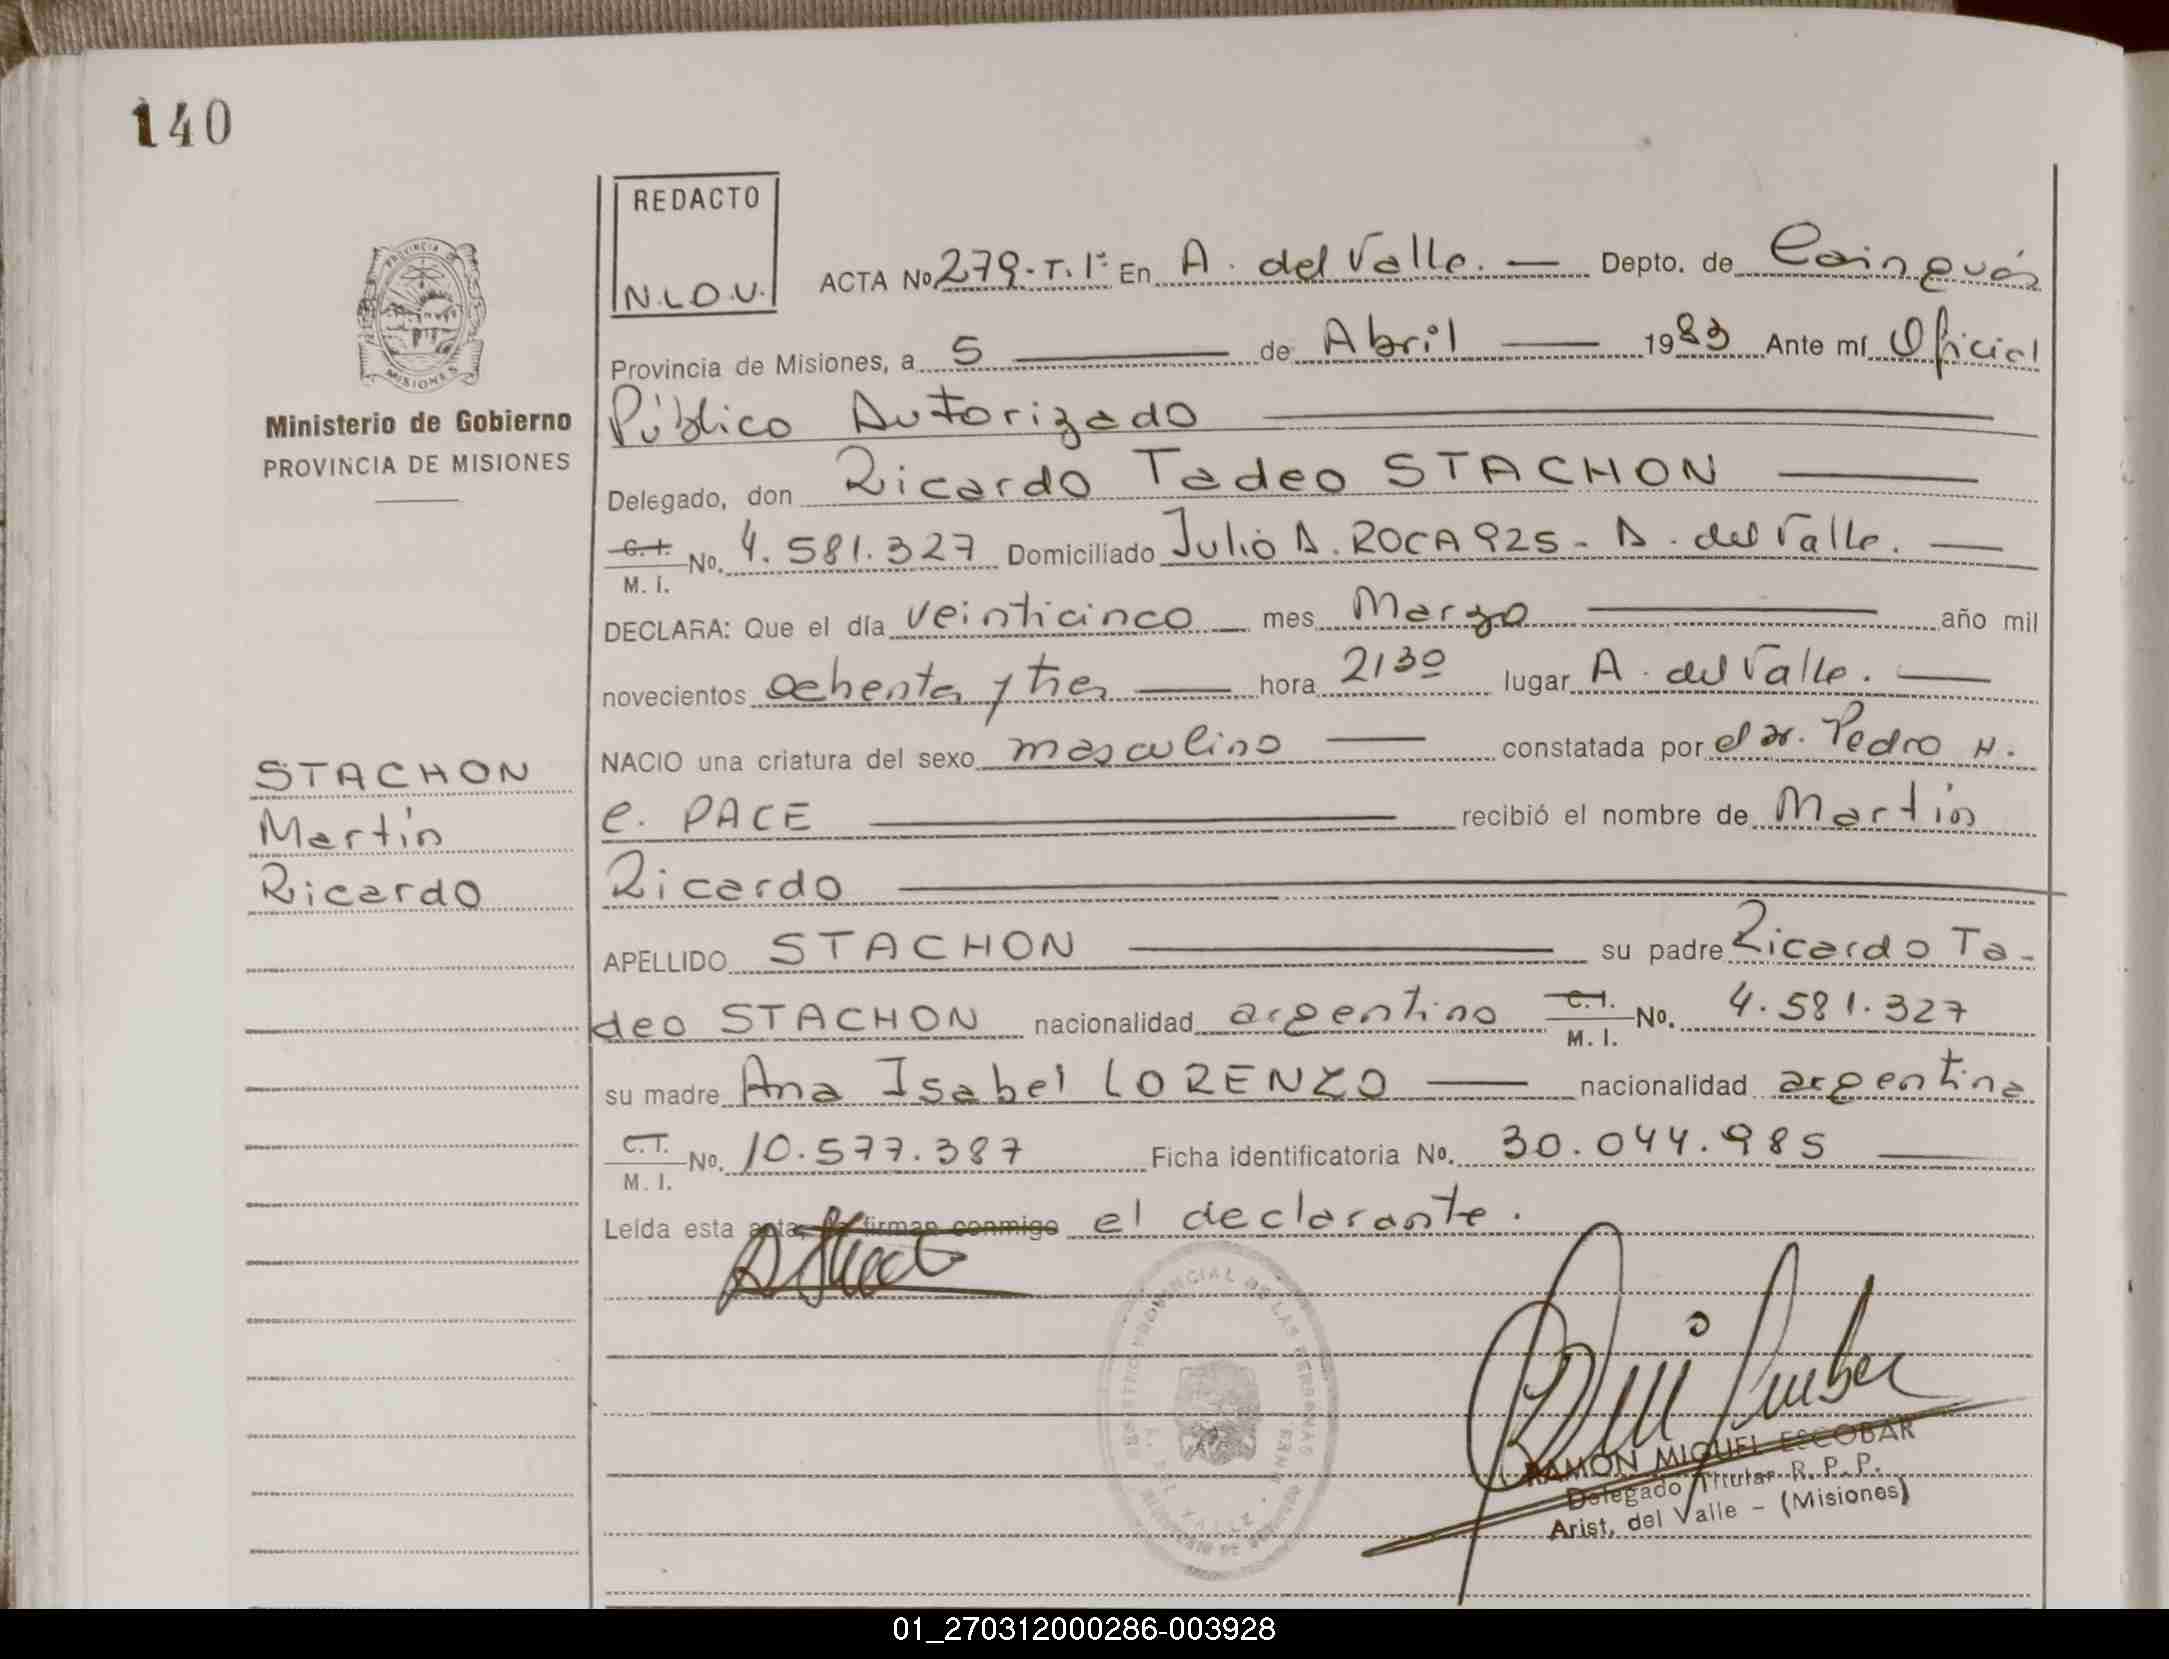 140
REDACTO
N.L.D.V.
ACTA No 279-T.1º En A. del Valle. — Depto. de Cainguás
Provincia de Misiones, a 5 — de Abril — 1983 Ante mí Oficial
PROVINCIA
MISIONES
Ministerio de Gobierno
PROVINCIA DE MISIONES
Público Autorizado —
Delegado, don Ricardo Tadeo STACHON —
C.I. M. I. No. 4.581.327 Domiciliado Julio A. ROCA 925 - A. del Valle. —
DECLARA: Que el día veinticinco — mes Marzo — año mil
novecientos ochenta y tres — hora 2130 lugar A. del Valle. —
NACIO una criatura del sexo masculino — constatada por el Dr. Pedro H.
C. PACE — recibió el nombre de Martín
Ricardo —
STACHON
Martín
Ricardo
APELLIDO STACHON — su padre Ricardo Ta-
deo STACHON nacionalidad argentino C.I. M. I. No. 4.581.327
su madre Ana Isabel LORENZO — nacionalidad argentina
C.I. M. I. No. 10.577.387 Ficha identificatoria No. 30.044.985 —
Leída esta acta, la firman conmigo el declarante.
RAMON MIGUEL ESCOBAR
Delegado Titular R. P. P.
Arist. del Valle - (Misiones)
01_270312000286-003928